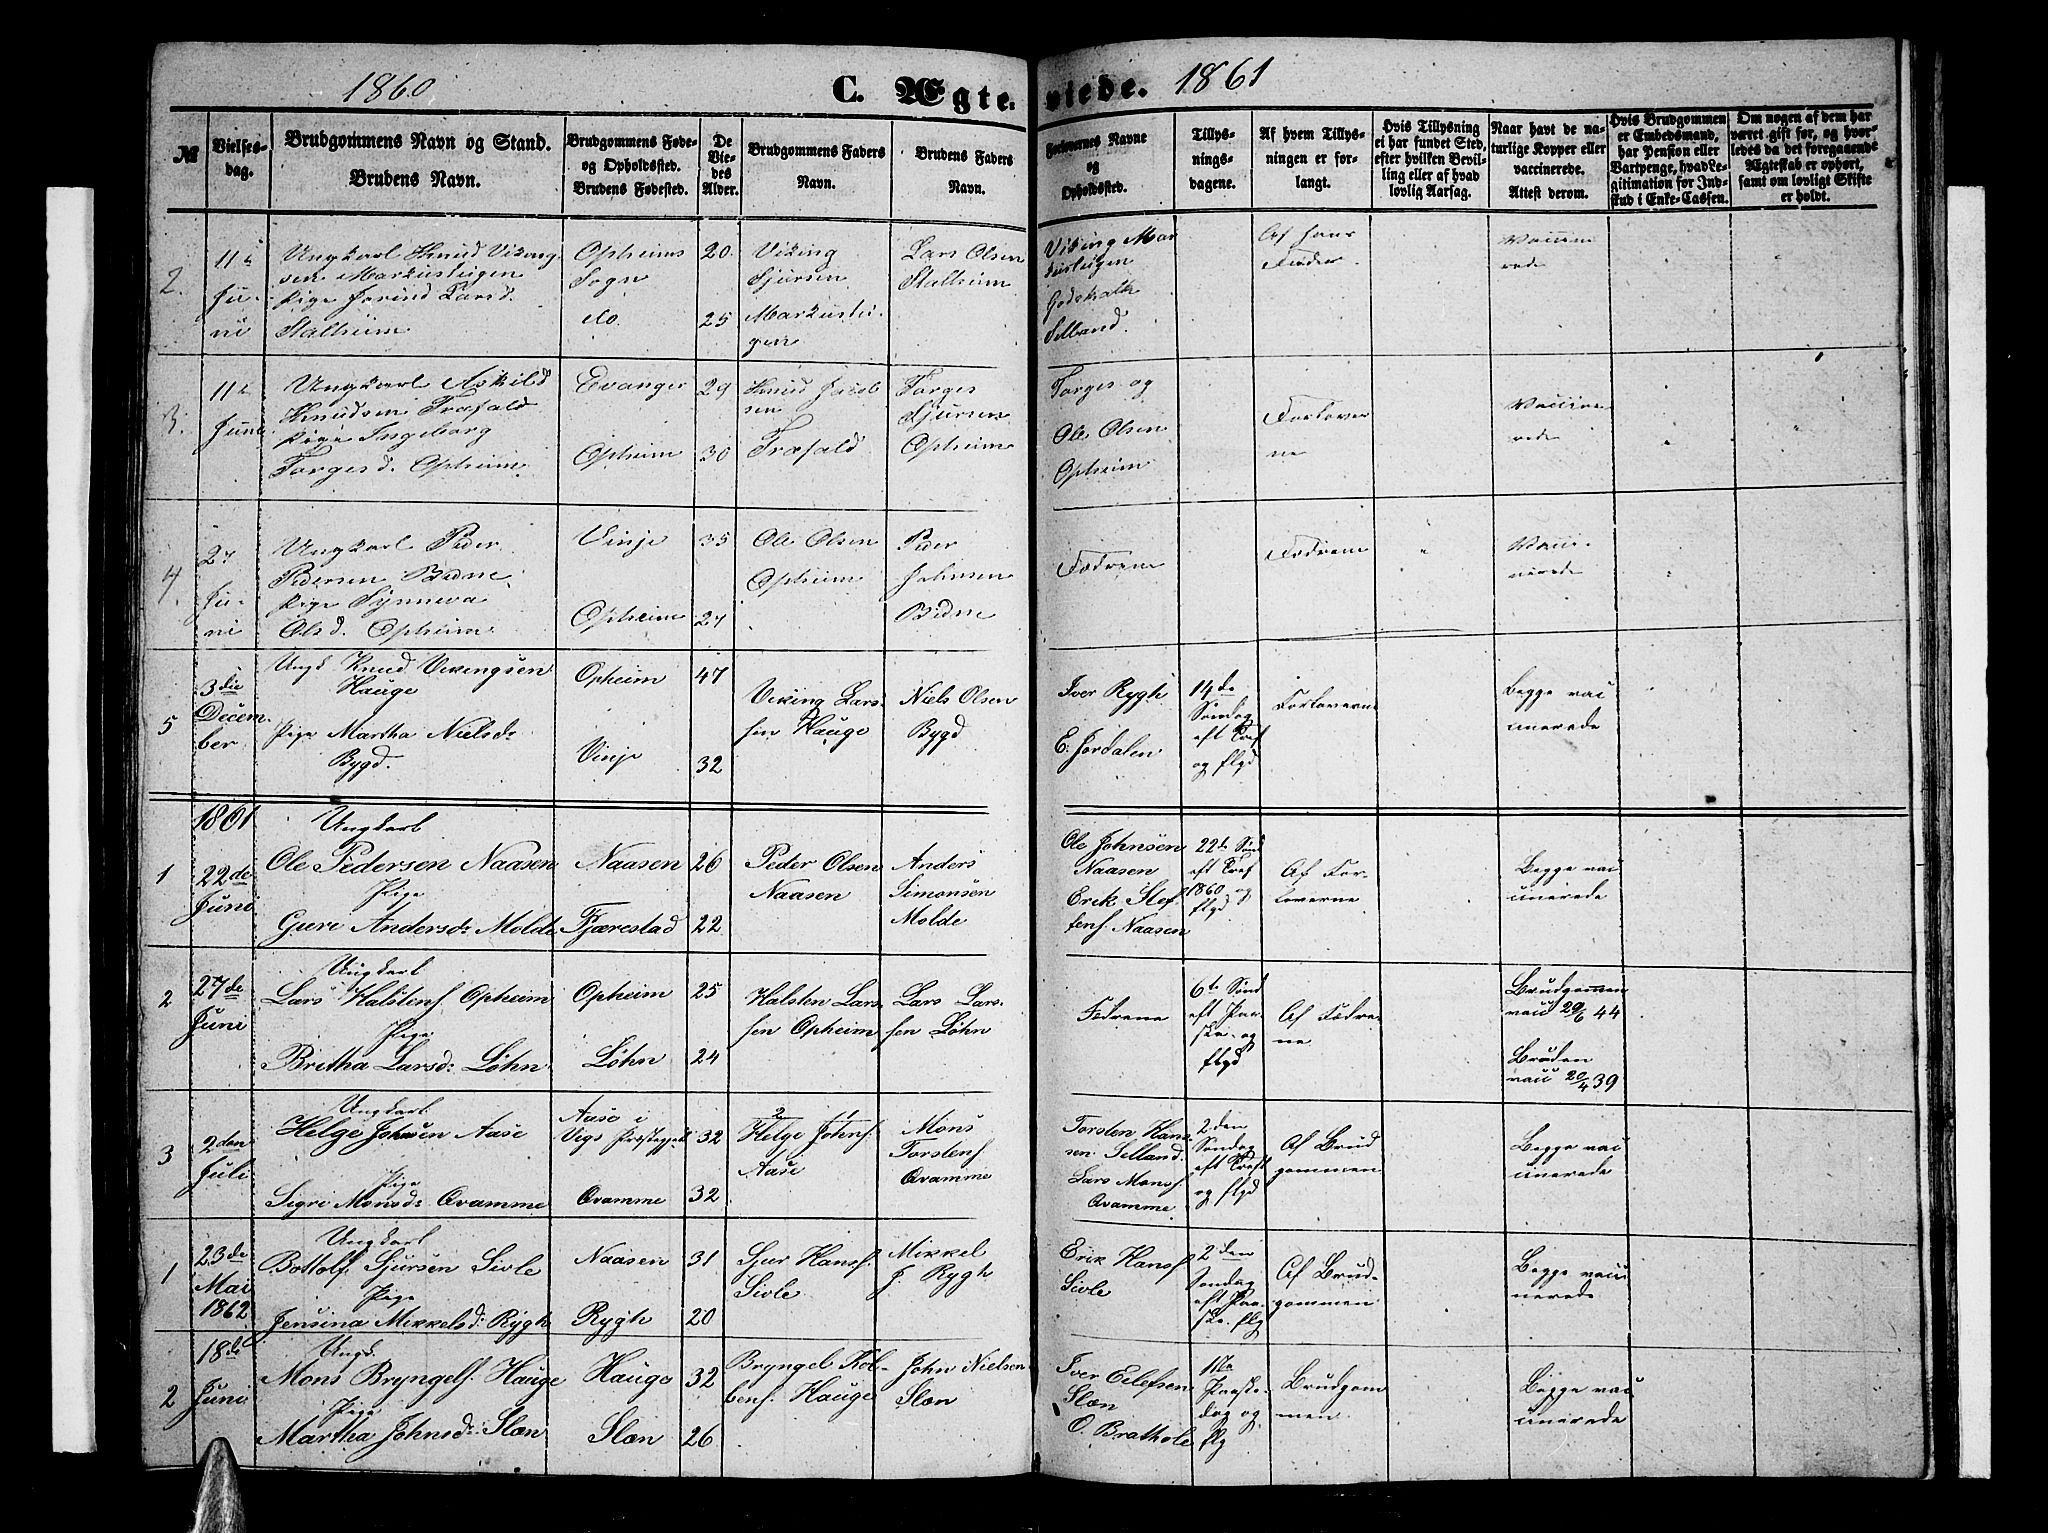 1860
C. Ægte-
viede.
1861
№
Vielses-
dag.
Brudgommens Navn og Stand.
Brudens Navn.
Brudgommens Føde-
og Opholdssted.
Brudens Fødested.
De
Vie-
des
Alder.
Brudgommens Faders
Navn.
Brudens Faders
Navn.
Forlovernes Navne
og
Opholdssted.
Tillys-
nings-
dagene.
Af hvem Tillys-
ningen er for-
langt.
Hvis Tillysning
ei har fundet Sted,
efter hvilken Bevil-
ling eller af hvad
lovlig Aarsag.
Naar havt de na-
turlige Kopper eller
vaccinerede.
Attest derom.
Hvis Brudgommen
er Embedsmand,
har Pension eller
Vartpenge, hvad Le-
gitimation for Ind-
skud i Enke-Cassen.
Om nogen af dem har
været gift før, og hvor-
ledes da det foregaaende
Ægteskab er ophørt,
samt om lovligt Skifte
er holdt.
2.
11te
Ju-
ni
Ungkarl Knud Viking
sen Markusteigen
Pige Jorind Larsd.
Stalheim
Opheims
Sogn
do.
20.
25
Viking
Sjursen
Markustei-
gen
Lars Olsen
Stalheim
Viking Mar
kusteigen
Godskalk
Selland.
Af hans
Fader.
Vaccine
rede
3.
11te
Juni
Ungkarl Askild
Knudsen Træfald
Pige Ingeborg
Torgesd. Opheim
Evanger
Opheim
29
30
Knud Jacob
sen
Træfald
Torges
Sjursen
Opheim
Torges og
Ole Olsen
Opheim
Forlover
ne
Vaccine
rede
4.
27
Ju-
ni
Ungkarl Peder
Pedersen Bidne
Pige Synneva
Olsd. Opheim
Vinje
Opheim
35
27
Ole Olsen
Opheim
Peder
Johnsen
Bidne
Fædrene
Fædrene
Vacci-
nerede
5
3die
Decem-
ber
Ungk Knud Vikingsen
Hauge
Pige Martha Nielsd:
Bygd.
Opheim
Vinje
47
32
Viking Lars-
sen Hauge
Niels Olsen
Bygd
Iver Rygh
E: Jordalen
14de
Søndag
eft Tref
og flgd
Forloverne
Begge vac
cinerede
1861
1
22de
Juni
Ungkarl
Ole Pedersen Naasen
Pige
Guri Andersd: Molde
Naasen
Fjærestad
26
22
Peder Olsen
Naasen
Anders
Simonsen
Molde
Ole Johnsen
Naasen
Erik Stef-
fens. Naasen
22de Sønd
eft Tref
1860 og
flgd
Af For-
loverne
Begge vac
cinerede
2
27de
Juni
Ungkarl
Lars Halstens. Opheim
Pige
Britha Larsd: Løhn
Opheim
Løhn
25
24
Halsten Lars-
sen Opheim
Lars Lars-
sen Løhn
Fædrene
6te Sønd
eft Paa-
ske og
flgd
Af Fædre-
ne
Brudgomen
vacc 29/6 44
Bruden
vacc 20/4 39
3
2den
Juli
Ungkarl
Helge Johnsen Aase
Pige
Sigri Monsd: Qvamme
Aase i
Vigs Præstegjeld
Qvamme
32
32
Helge Johns.
Aase
Mons
Torstens.
Qvamme
Torsten Han-
sen Selland.
Lars Mons.
Qvamme
2den
Søndag
eft Tref
og flgd
Af Brud
gommen
Begge vac
cinerede
1
23de
Mai
1862
Ungkarl
Bottolf Sjursen Sivle
Pige
Jensina Mikkelsd: Rygh
Naasen
Rygh
31
20
Sjur Hans.
Sivle
Mikkel
J. Rygh
Erik Hans.
Sivle
2den
Søndag
eft Paa-
ske. flg
Af Brud-
gommen
Begge vacci
nerede
2
18de
Juni
Ungk.
Mons Bryngels. Hauge
Pige
Martha Johnsd: Slæn
Hauge
Slæn
32
26
Bryngel Kol-
bens. Hauge
John Nielsen
Slæn
Iver Eilefsen
Slæn
O. Brathole
1ste
Paaske-
dag og
flg
Brudgom
men
Begge vac
cinerede